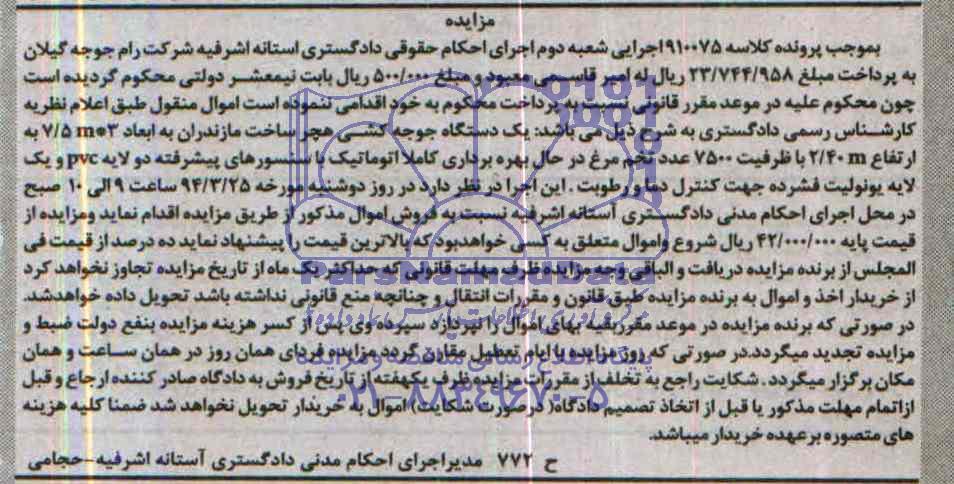 مزایده
بموجب پرونده کلاسه ۹۱۰۰۷۵ اجرایی شعبه دوم اجرای احکام حقوقی دادگستری استانه اشرفیه شرکت رام جوجه گیلان
به پرداخت مبلغ ۲۳/۷۴۴/۹۵۸ ریال له امیر قاسمی معبود و مبلغ ۵۰۰/۰۰۰ ریال بابت نیمعشر دولتی محکوم گردیده است
چون محکوم علیه در موعد مقرر قانونی نسبت به پرداخت محکوم به خود اقدامی ننموده است اموال منقول طبق اعلام نظریه
کارشناس رسمی دادگستری به شرح ذیل می باشد: یک دستگاه جوجه کشی هچر ساخت مازندران به ابعاد ۳*۷/۵ m به
ارتفاع ۲/۴۰ m با ظرفیت ۷۵۰۰ عدد تخم مرغ در حال بهره برداری کاملا اتوماتیک با سنسورهای پیشرفته دو لایه pvc و یک
لایه یونولیت فشرده جهت کنترل دما و رطوبت . این اجرا در نظر دارد در روز دوشنبه مورخه ۹۴/۳/۲۵ ساعت ۹ الی ۱۰ صبح
در محل اجرای احکام مدنی دادگستری آستانه اشرفیه نسبت به فروش اموال مذکور از طریق مزایده اقدام نماید ومزایده از
قیمت پایه ۴۲/۰۰۰/۰۰۰ ریال شروع واموال متعلق به کسی خواهدبود که بالاترین قیمت را پیشنهاد نماید ده درصد از قیمت فی
المجلس از برنده مزایده دریافت و الباقی وجه مزایده ظرف مهلت قانونی که حداکثر یک ماه از تاریخ مزایده تجاوز نخواهد کرد
از خریدار اخذ و اموال به برنده مزایده طبق قانون و مقررات انتقال و چنانچه منع قانونی نداشته باشد تحویل داده خواهدشد.
در صورتی که برنده مزایده در موعد مقرربقیه بهای اموال را نپردازد سپرده وی پس از کسر هزینه مزایده بنفع دولت ضبط و
مزایده تجدید میگردد.در صورتی که روز مزایده با ایام تعطیل مقارن گردد مزایده فردای همان روز در همان ساعت و همان
مکان برگزار میگردد . شکایت راجع به تخلف از مقررات مزایده ظرف یکهفته از تاریخ فروش به دادگاه صادر کننده ارجاع و قبل
ازاتمام مهلت مذکور یا قبل از اتخاذ تصمیم دادگاه( درصورت شکایت) اموال به خریدار تحویل نخواهد شد ضمنا کلیه هزینه
های متصوره برعهده خریدار میباشد.
ح ۷۷۲ مدیراجرای احکام مدنی دادگستری آستانه اشرفیه-حجامی
ParsnamadData
۰۲۱-۸۸۳۴۹۶۷۰-۵